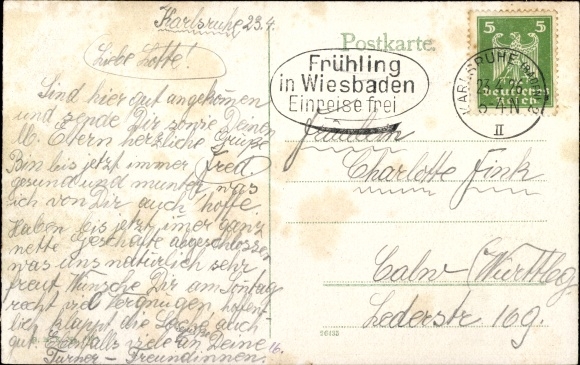 Karlsruhe 23.4.
Liebe Lotte!
Sind hier gut angekommen
und sende Dir sowie Deinen
l. Eltern herzliche Grüße
Bin bis jetzt immer Fred
gesund und munter, was
ich von Dir auch hoffe.
Haben bis jetzt immer ganz
nette Geschäfte abgeschlossen
was uns natürlich sehr
freut. Wünsche Dir am Sonntag
recht viel Vergnügen, hoffent-
lich klappt die auch
gut. Ebenfalls viele an Deine
Turner-Freundinnen.
Postkarte.
Frühling
in Wiesbaden
Einreise frei
KARLSRUHE
23.4.
II
5 5
Deutsches
Reich
Fräulein
Charlotte Fink
Calw (Württbg.
Lederstr 169.